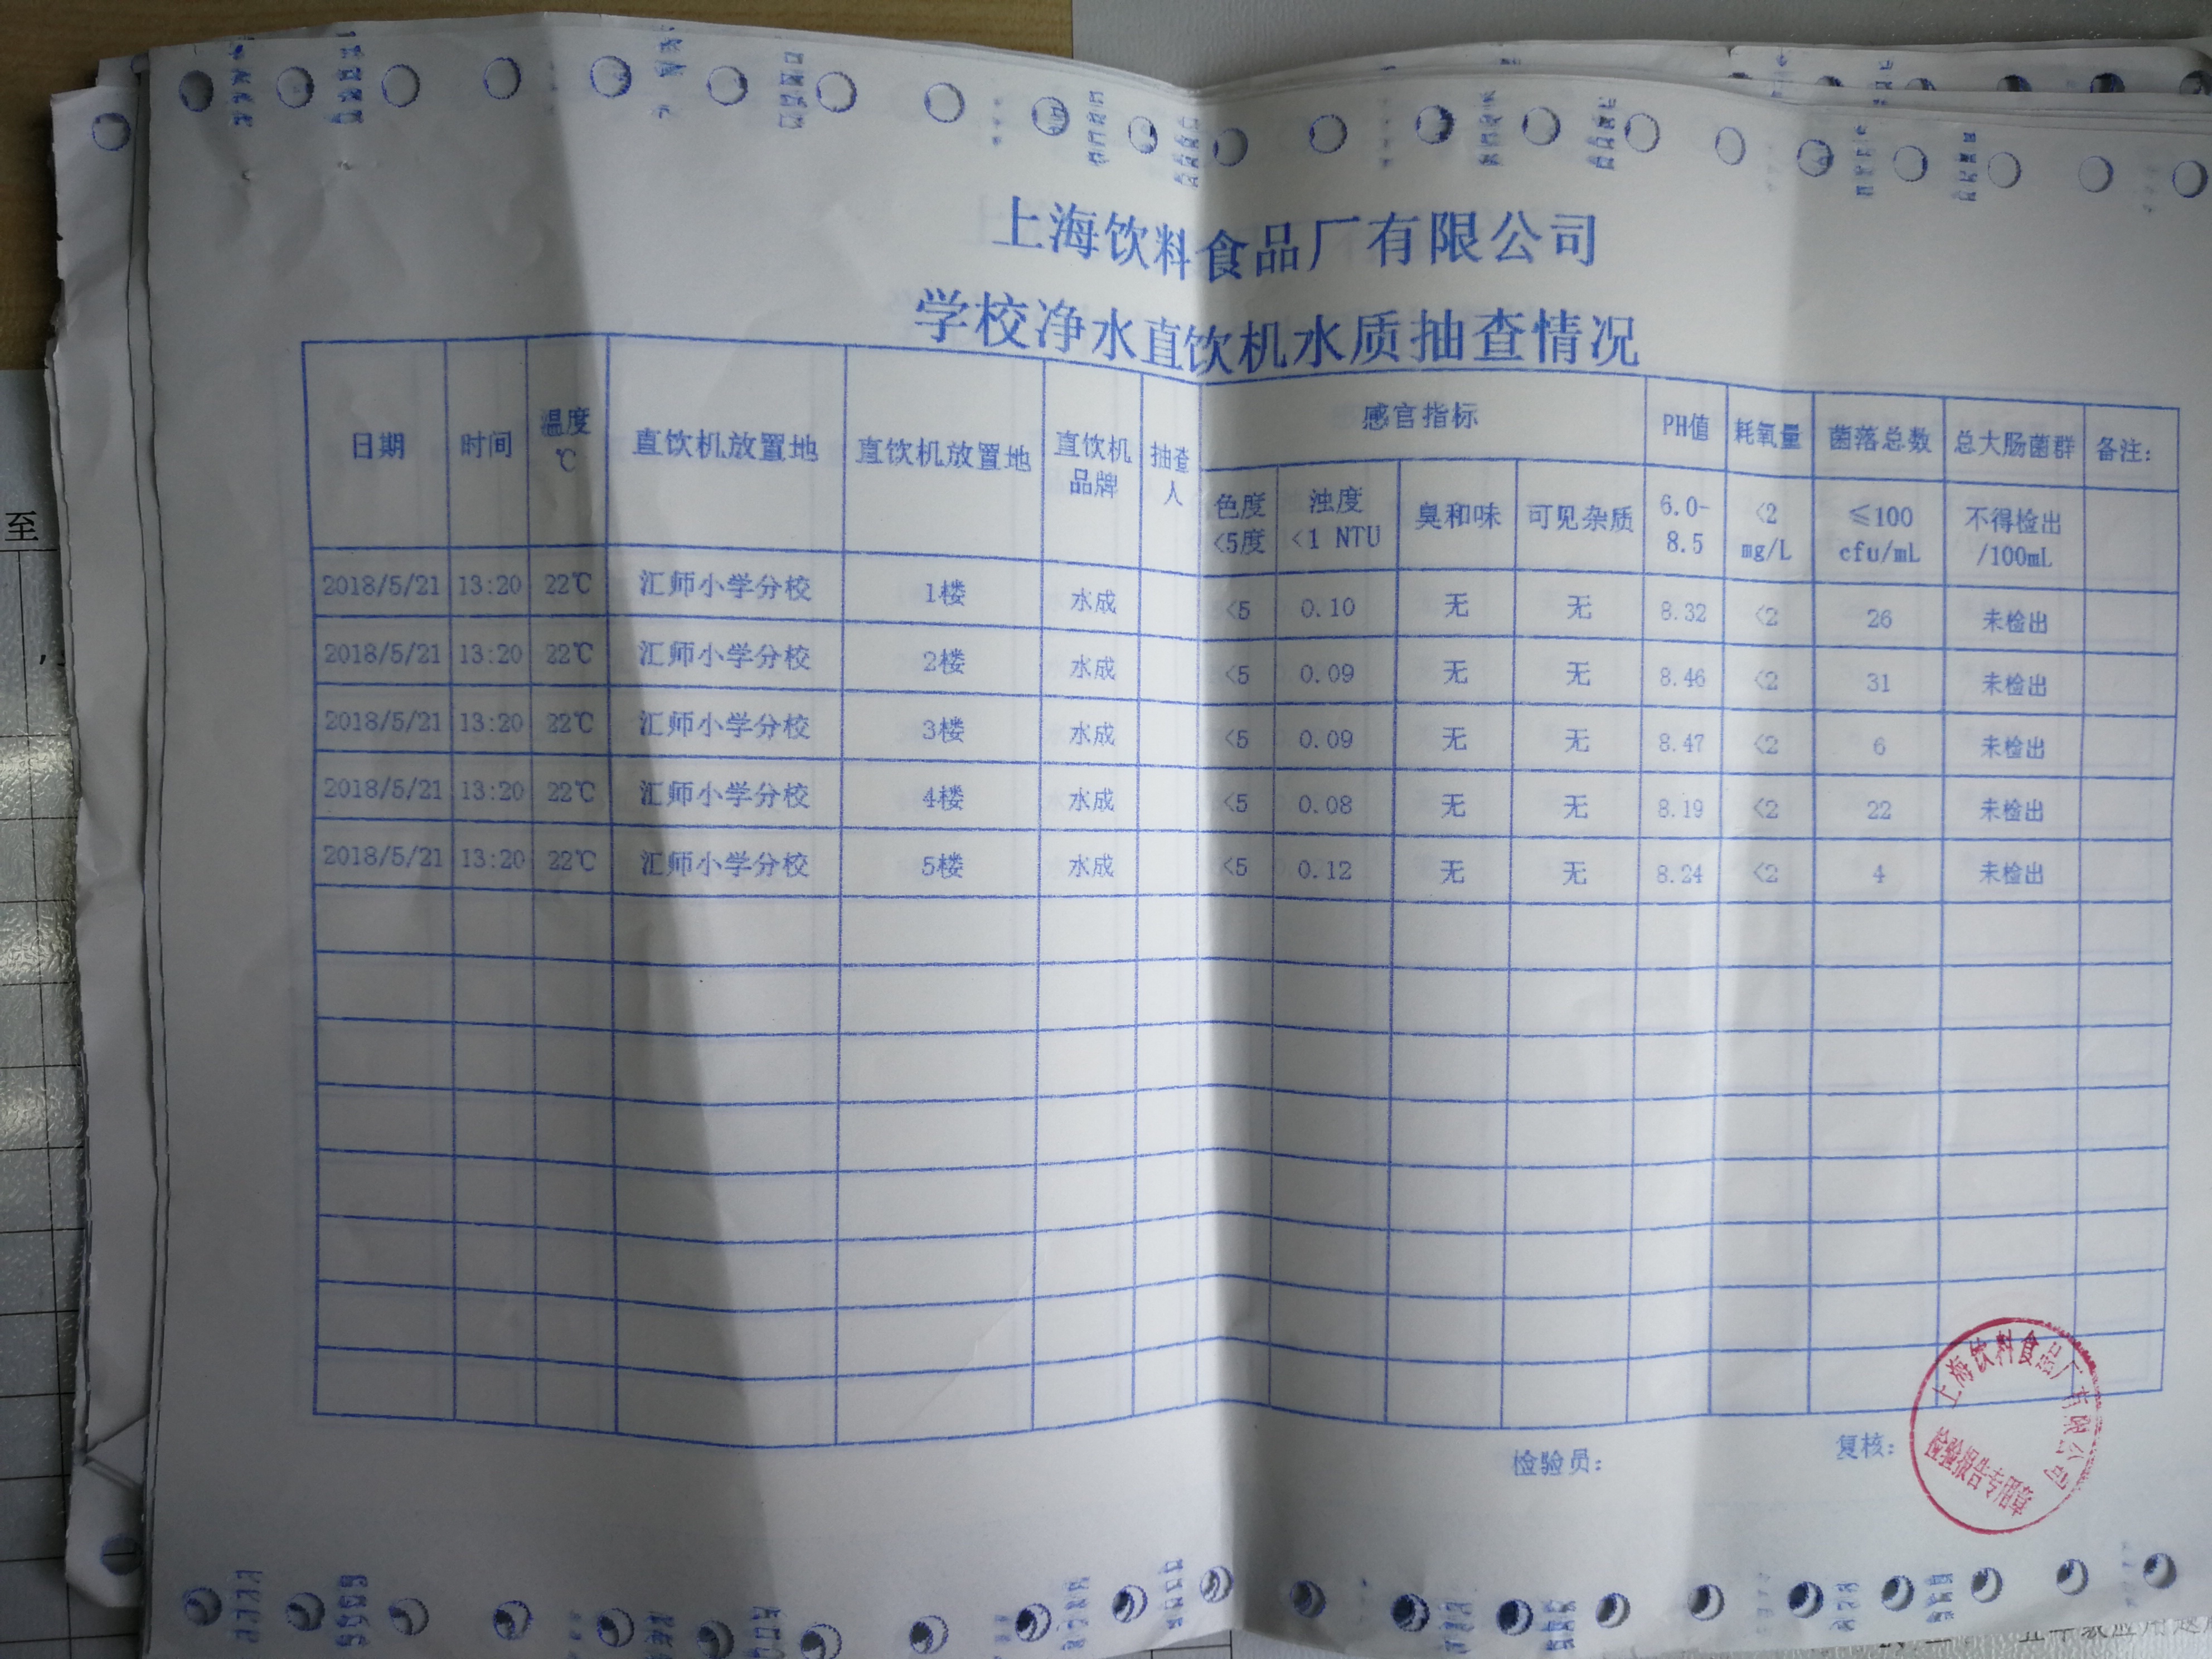 上海饮料食品厂有限公司
学校净水直饮机水质抽查情况
日期 时间 温度℃ 直饮机放置地 直饮机放置地 直饮机品牌 抽查人 感官指标 PH值 耗氧量 菌落总数 总大肠菌群 备注:
色度<5度 浊度<1 NTU 臭和味 可见杂质 6.0-8.5 <2 mg/L ≤100 cfu/mL 不得检出/100mL
2018/5/21 13:20 22℃ 汇师小学分校 1楼 水成 <5 0.10 无 无 8.32 <2 26 未检出
2018/5/21 13:20 22℃ 汇师小学分校 2楼 水成 <5 0.09 无 无 8.46 <2 31 未检出
2018/5/21 13:20 22℃ 汇师小学分校 3楼 水成 <5 0.09 无 无 8.47 <2 6 未检出
2018/5/21 13:20 22℃ 汇师小学分校 4楼 水成 <5 0.08 无 无 8.19 <2 22 未检出
2018/5/21 13:20 22℃ 汇师小学分校 5楼 水成 <5 0.12 无 无 8.24 <2 4 未检出
检验员: 复核:
上海饮料食品厂有限公司
检验报告专用章
至